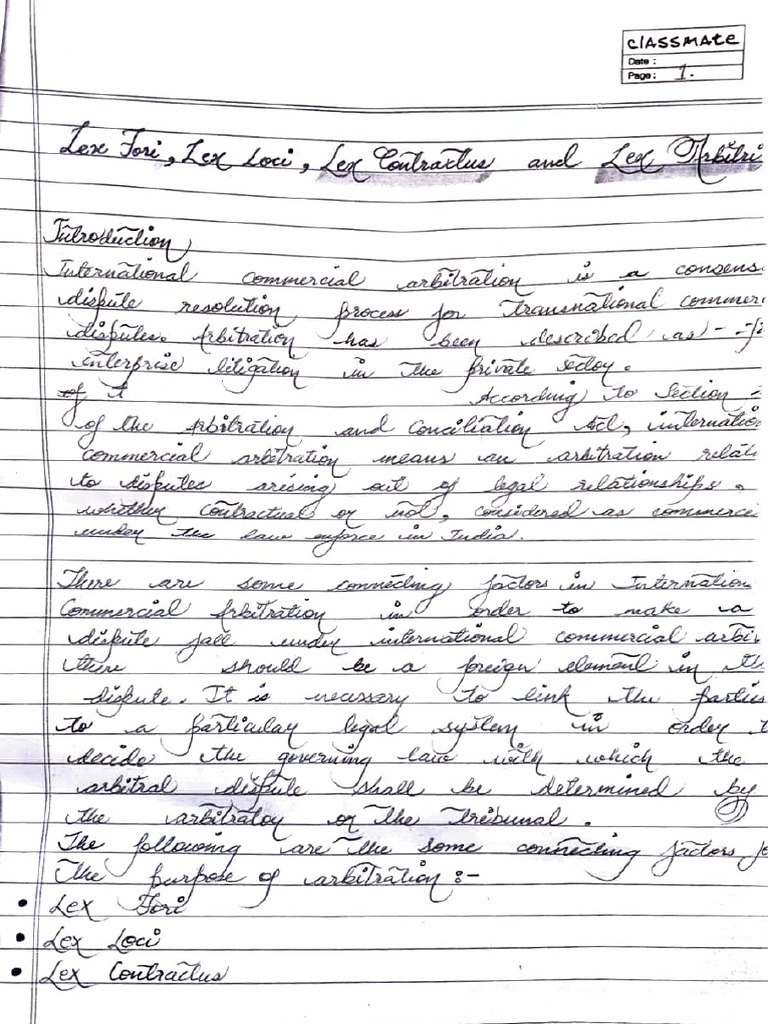 CLASSMATE
Date :
Page : 1.
Lex Fori, Lex Loci, Lex Contractus and Lex Arbitri
Introduction
International commercial arbitration is a consens
dispute resolution process for transnational commer
disputes. Arbitration has been described as -
enterprise litigation in the private sector.
of t According to Section
of the Arbitration and Conciliation Act, internatio
commercial arbitration means an arbitration relati
to disputes arising out of legal relationships,
whether contractual or not, considered as commerci
under the law enforce in India.
There are some connecting factors in Internation
Commercial Arbitration in order to make a
dispute fall under international commercial arbi
there should be a foreign element in th
dispute. It is necessary to link the parties
to a particular legal system in order t
decide the governing law with which the
arbitral dispute shall be determined by
the arbitrator or the tribunal.
The following are the some connecting factors fo
the purpose of arbitration :-
• Lex Fori
• Lex Loci
• Lex Contractus